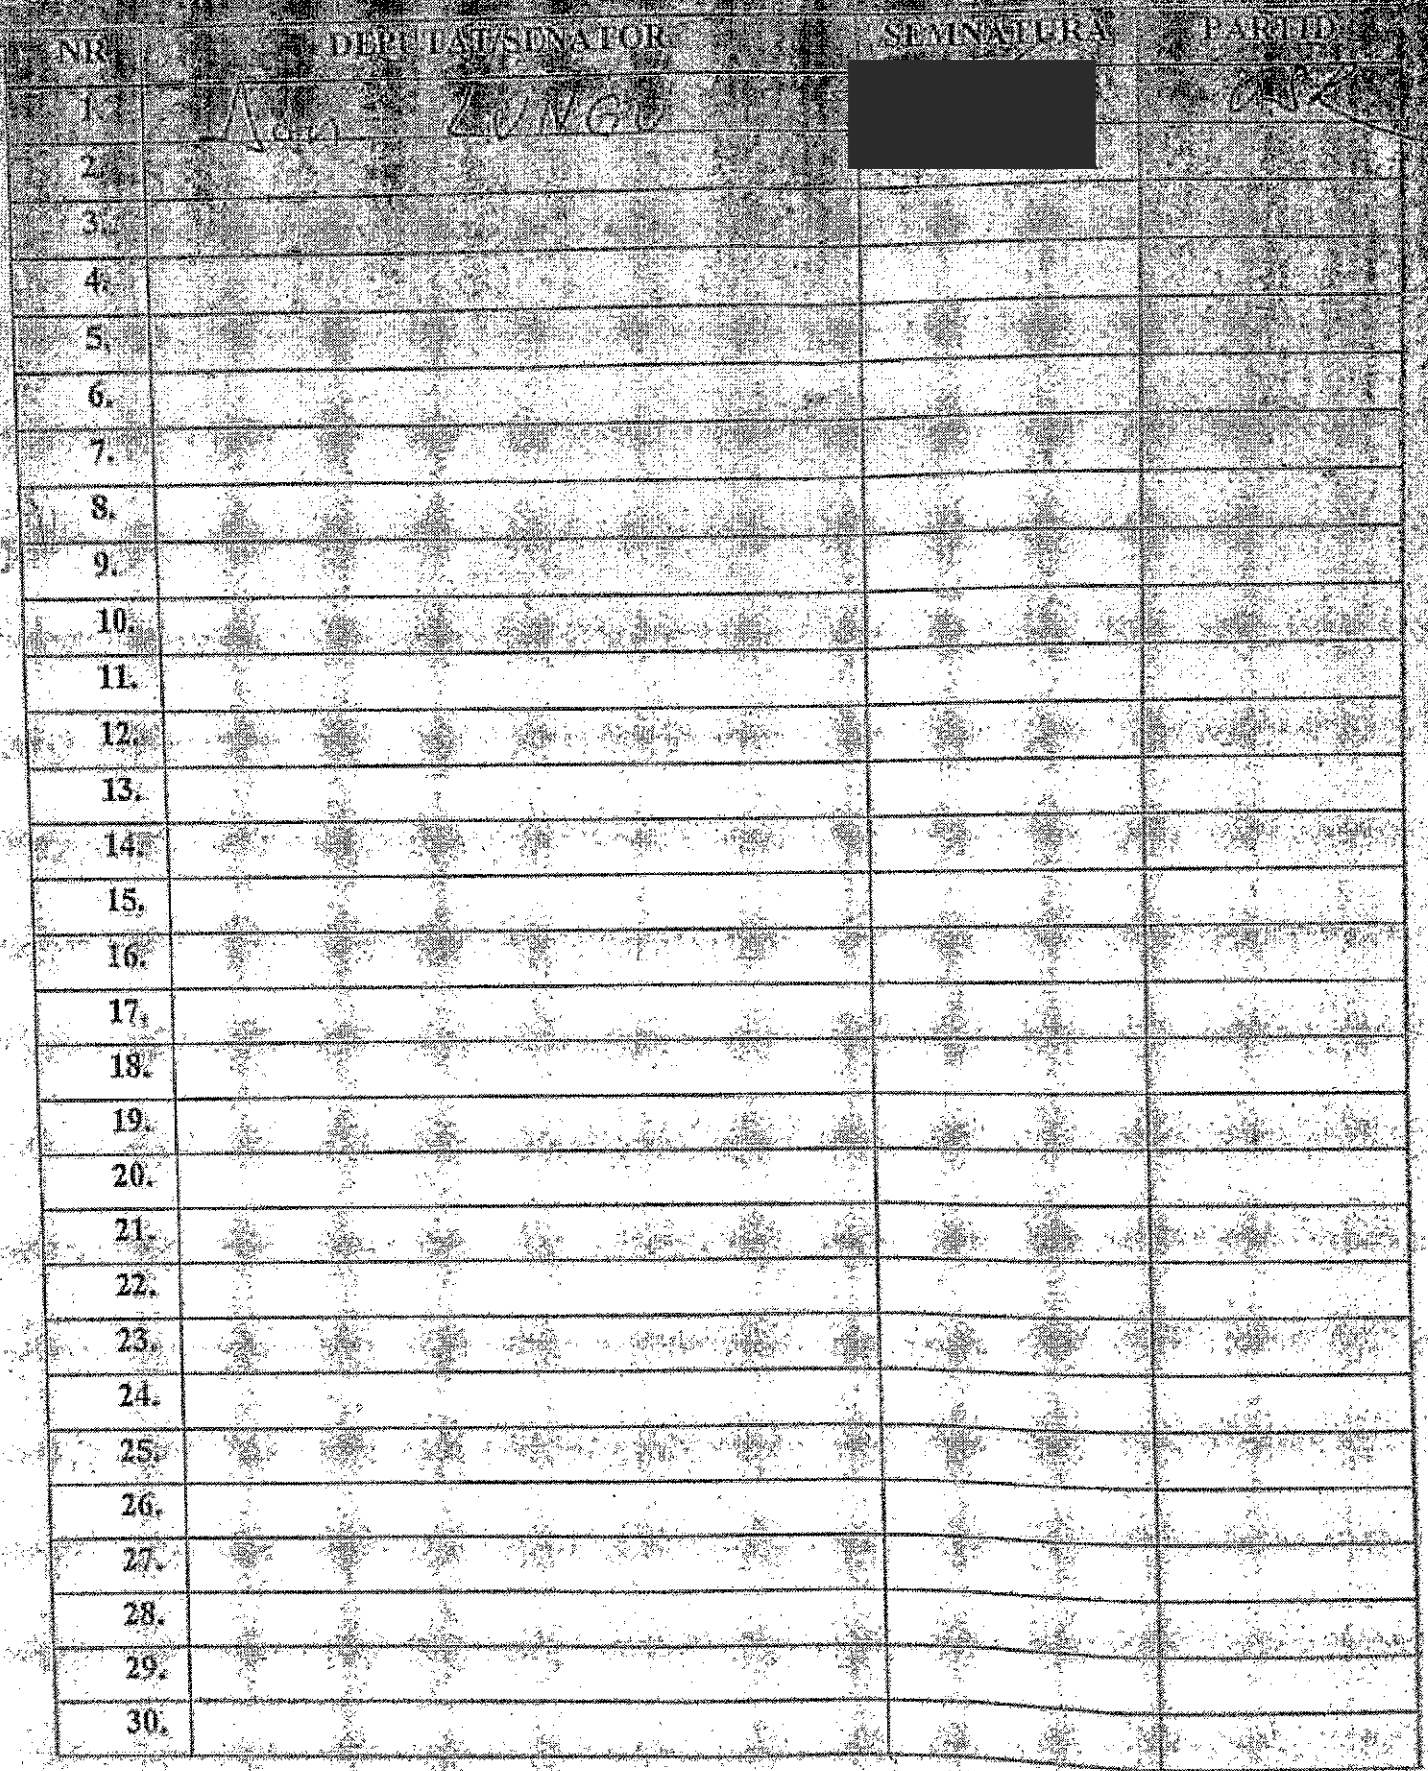 NR. DEPUTAT/SENATOR SEMNATURA PARTID
1. LUNGU
2.
3.
4.
5.
6.
7.
8.
9.
10.
11.
12.
13.
14.
15.
16.
17.
18.
19.
20.
21.
22.
23.
24.
25.
26.
27.
28.
29.
30.